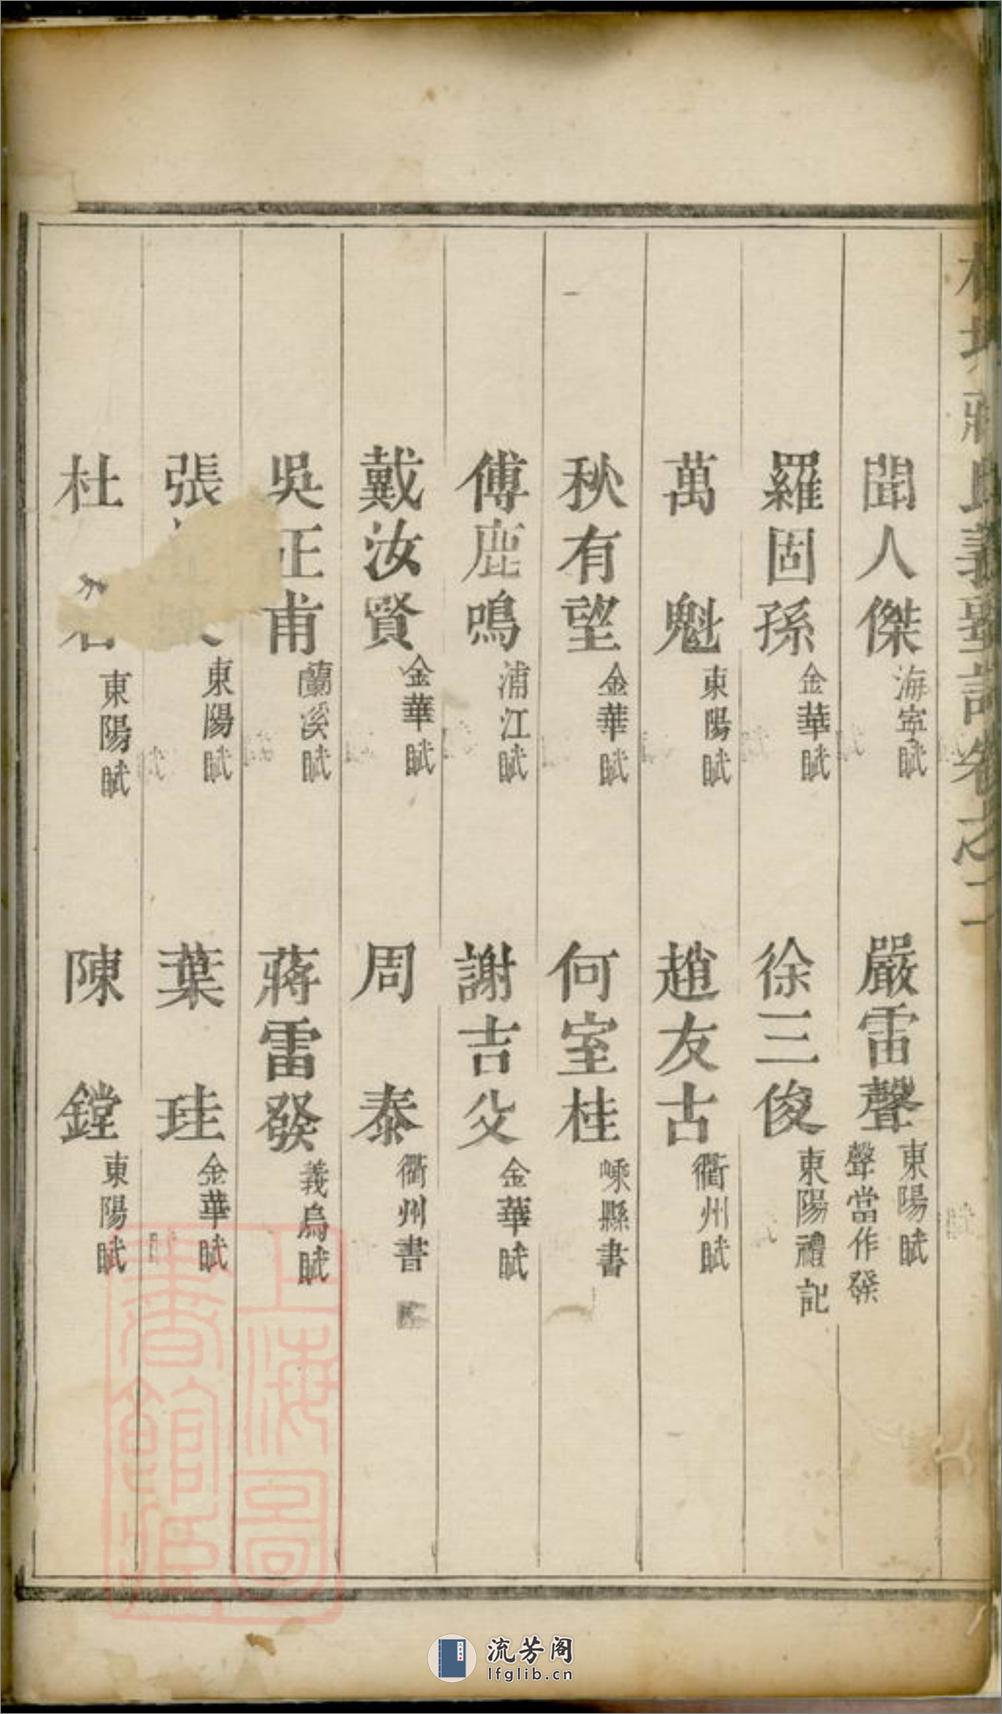 聞人傑 海寧賦 嚴雷聲 東陽賦 聲當作發
羅固孫 金華賦 徐三俊 東陽禮記
萬魁 東陽賦 趙友古 衢州賦
秋有望 金華賦 何室桂 嵊縣書
傅鹿鳴 浦江賦 謝吉父 金華賦
戴汝賢 金華賦 周泰 衢州書
吳正甫 蘭溪賦 蔣雷發 義烏賦
張 東陽賦 葉珪 金華賦
杜 東陽賦 陳鏜 東陽賦
蔣氏義塾記卷之二
上海圖書館藏
流芳阁
lfglib.cn